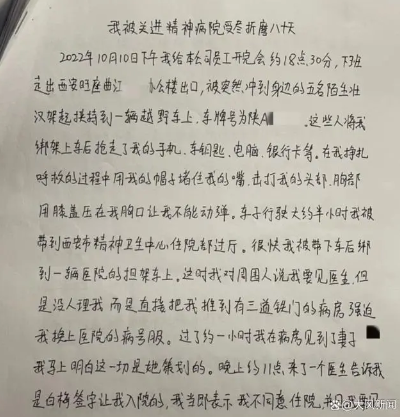 我被关进精神病院受尽折磨八十天
2022年10月10日下午我给本公司员工开完会约18点30分，下班
走出西安旺座曲江 办公楼出口，被突然冲到身边的五名陌生壮
汉架起挟持到一辆越野车上，车牌号为陕A 。这些人将我
绑架上车后抢走了我的手机、车钥匙、电脑、银行卡等。在我挣扎
呼救的过程中用我的帽子堵住我的嘴，击打我的头部、胸部
用膝盖压在我胸口让我不能动弹。车子行驶大约半小时我被
带到西安市精神卫生中心住院部过厅。很快我被带下车后绑
到一辆医院的担架车上。这时我对周围人说我要见医生，但
是没人理我而是直接把我推到有三道铁门的病房，强迫
我换上医院的病号服。过了约一小时我在病房见到了妻子
我马上明白这一切是她策划的。晚上约11点，来了一个医生告诉我
是白梅签字让我入院的，我当即表示我不同意住院，
大风新闻